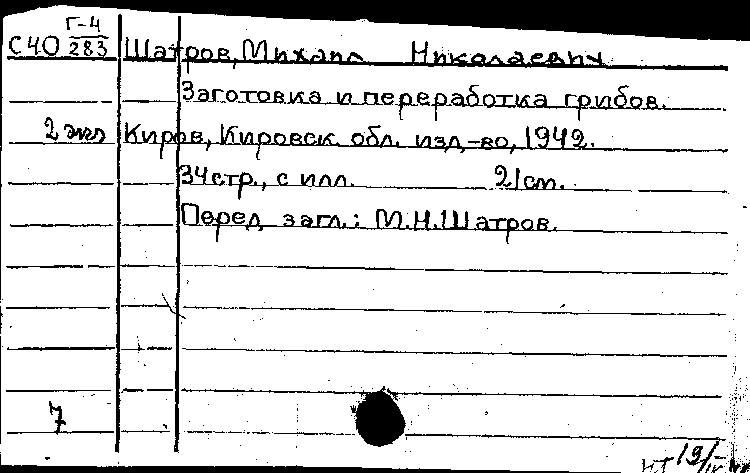 Г-4
С40 283 Шатров, Михаил Николаевич
Заготовка и переработка грибов.
2 экз Киров, Кировск. обл. изд-во, 1942.
34стр., с илл. 21см.
Перед загл.: М.Н.Шатров.
7
19/IV